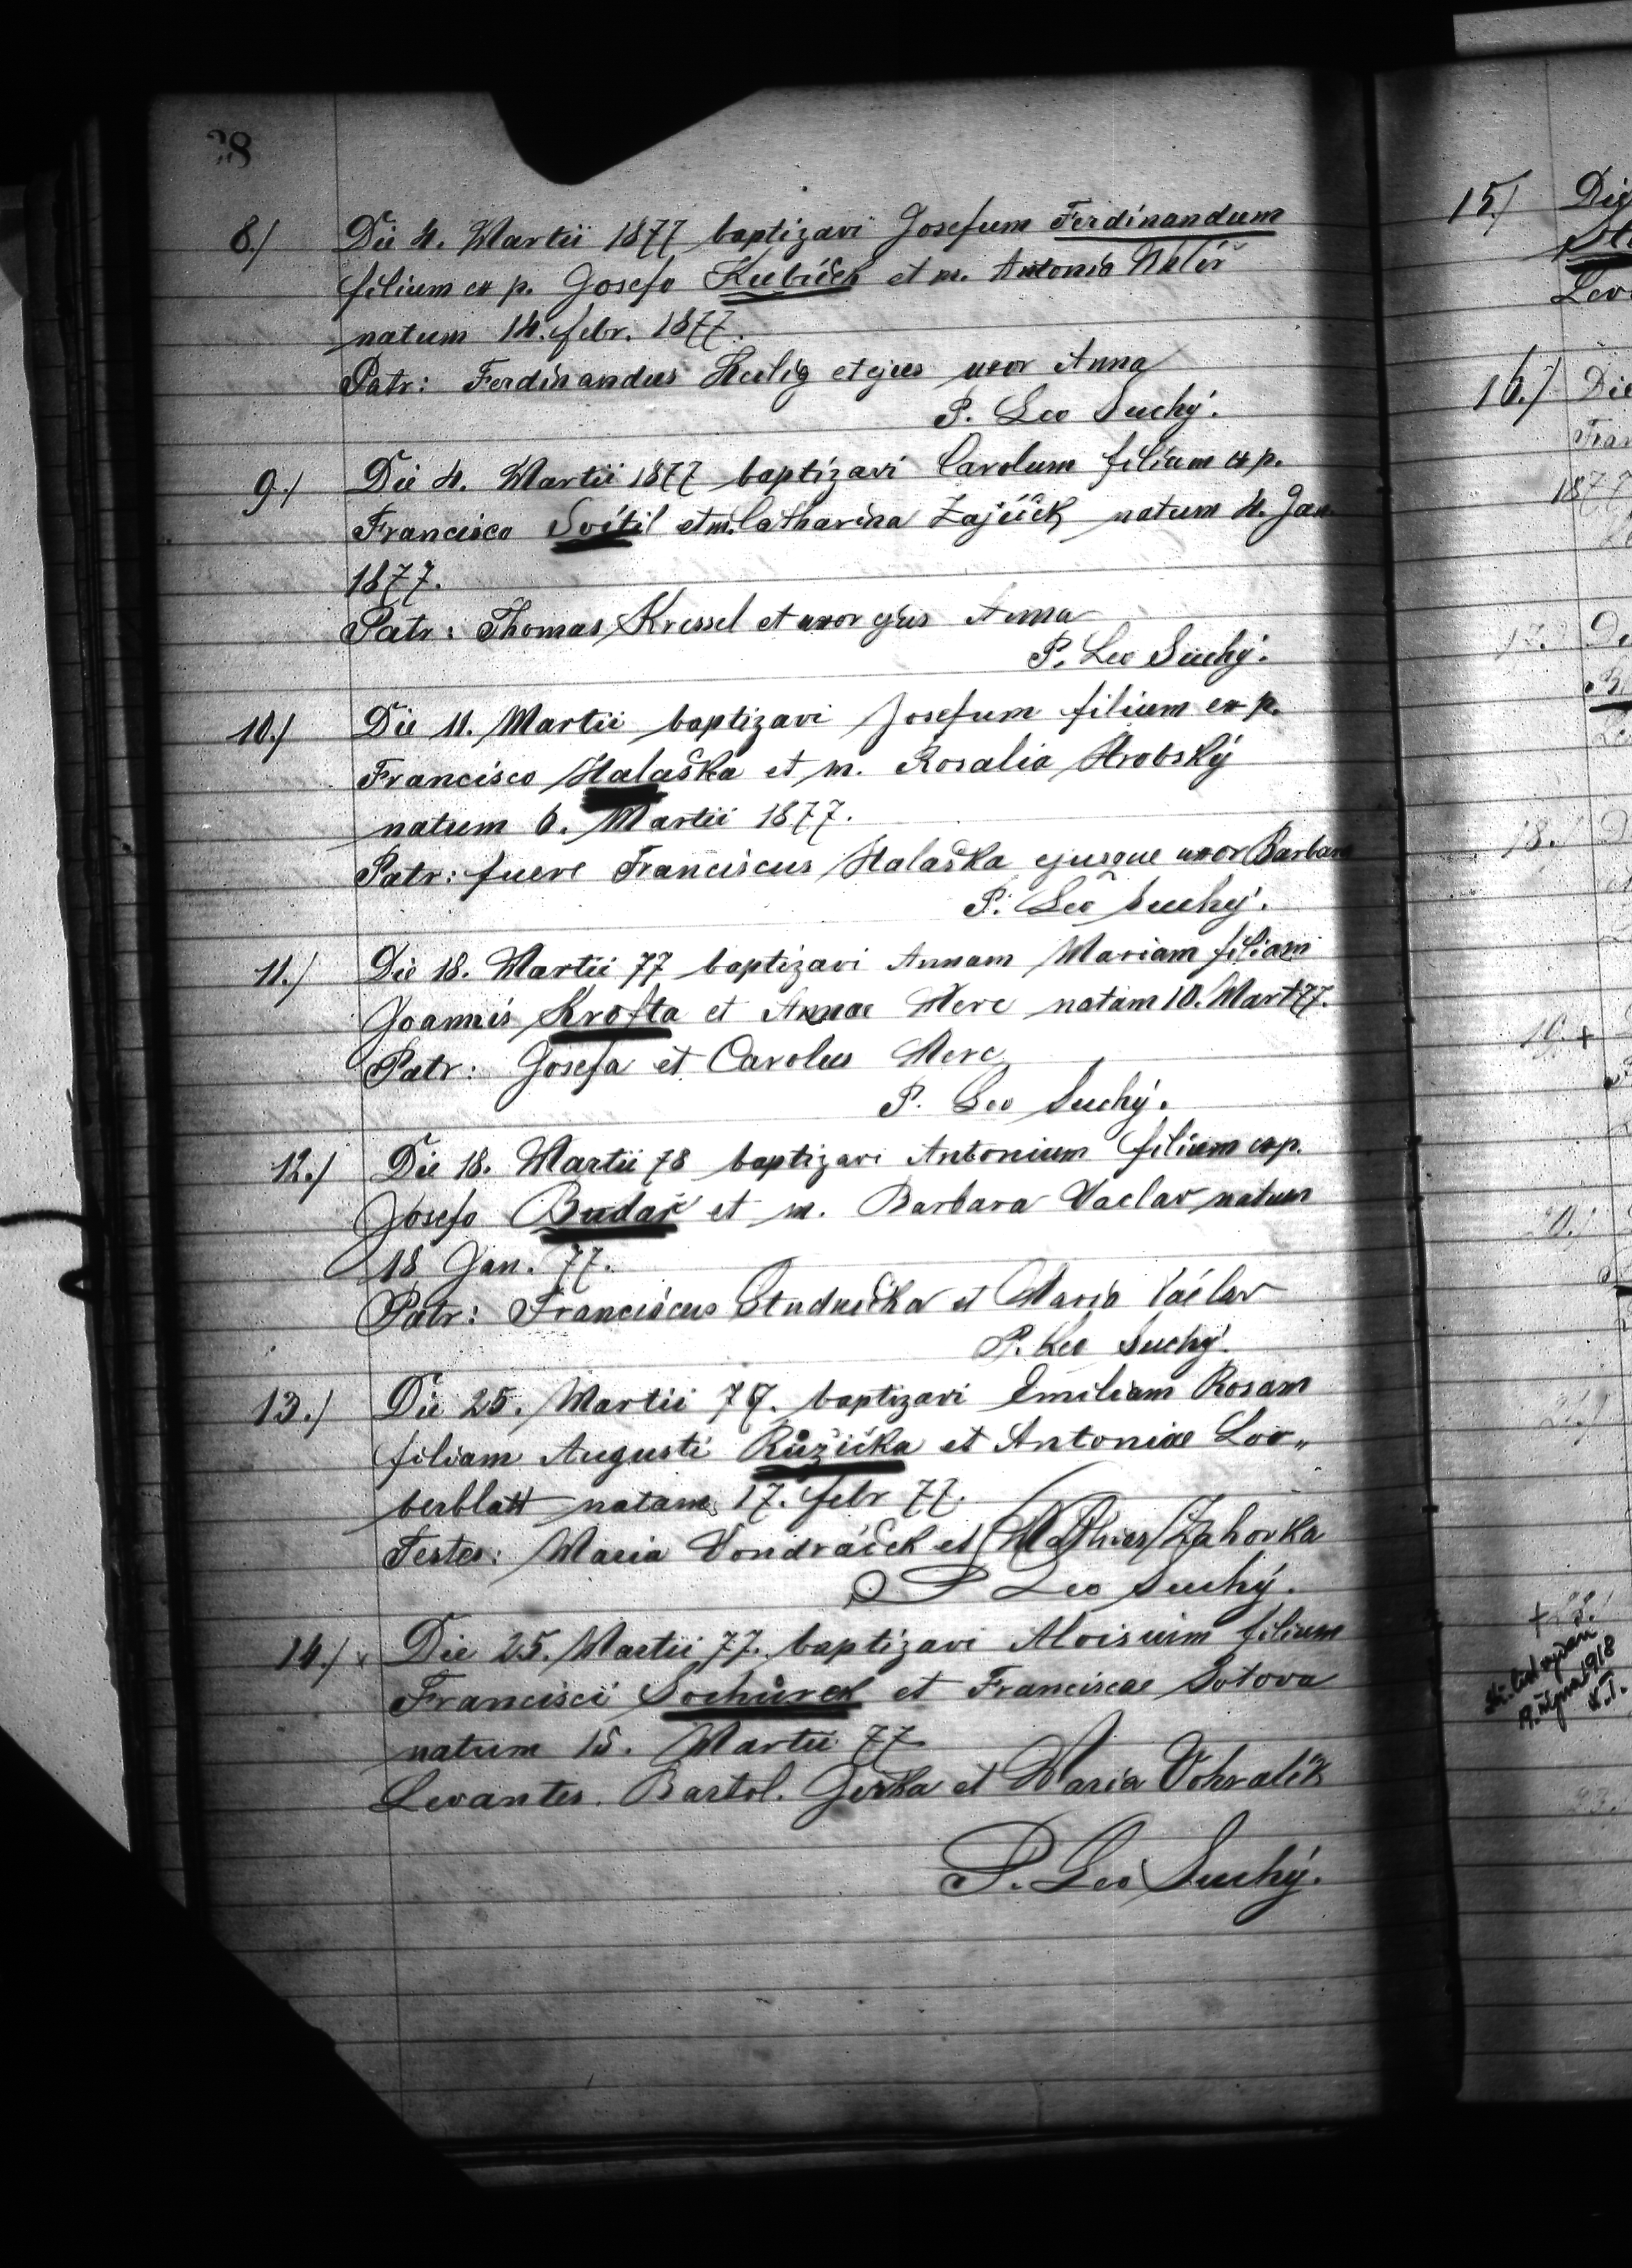 28
8./ Die 4. Martii 1877 baptizavi Josefum Ferdinandum
filium ex p. Josefo Kubíček et m. Antonia
natum 14. febr. 1877.
Patr: Ferdinandus Heilig et ejus uxor Anna
P. Leo Suchý.
9./ Die 4. Martii 1877 baptizavi Carolum filium ex p.
Francisco Svítil et m. Catharina Zajíček natum 4. Jan.
1877.
Patr: Thomas Kressel et uxor ejus Anna
P. Leo Suchý.
10./ Die 11. Martii baptizavi Josefum filium ex p.
Francisco Halaška et m. Rosalia Hrobský
natum 6. Martii 1877.
Patr: fuere Franciscus Halaška ejusque uxor Barbara
P. Leo Suchý.
11./ Die 18. Martii 77 baptizavi Annam Mariam filiam
Joannis Krofta et Annae Herc natam 10. Mart 77.
Patr: Josefa et Carolus Herc
P. Leo Suchý.
12./ Die 18. Martii 78 baptizavi Antonium filium ex p.
Josefo Budař et m. Barbara Vaclav natum
18 Jan. 77.
Patr: Franciscus Studnička et Maria Václav
P. Leo Suchý.
13./ Die 25. Martii 77. baptizavi Emiliam Rosam
filiam Augusti Růžička et Antoniae Lor„
berblatt natam 17. febr 77.
Testes: Maria Vondráček et Mathias Zahorka
P Leo Suchý.
14./ x Die 25. Martii 77. baptizavi Aloisium filium
Francisci Sochůrek et Franciscae Sotova
natum 15. Martii 77
Levantes. Bartol. Jerka et Maria Vohralík
P. Leo Suchý.
15./ Die
Lev
16./ Die
Fran
1877
17.
18.
19. +
20.
21.
1918